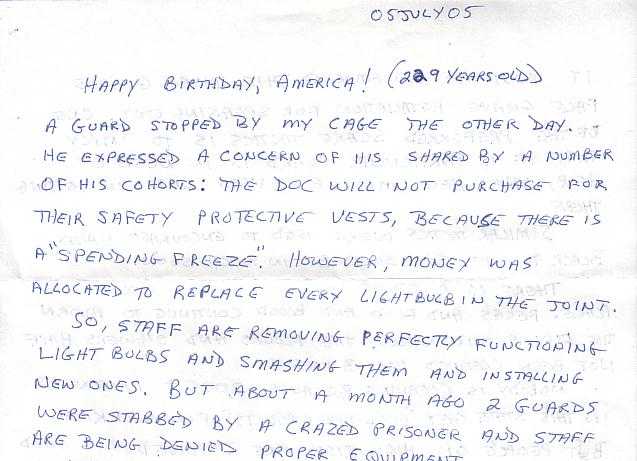 05JULY05
HAPPY BIRTHDAY, AMERICA! (229 YEARS OLD)
A GUARD STOPPED BY MY CAGE THE OTHER DAY.
HE EXPRESSED A CONCERN OF HIS SHARED BY A NUMBER
OF HIS COHORTS: THE DOC WILL NOT PURCHASE FOR
THEIR SAFETY PROTECTIVE VESTS, BECAUSE THERE IS
A "SPENDING FREEZE". HOWEVER, MONEY WAS
ALLOCATED TO REPLACE EVERY LIGHTBULB IN THE JOINT.
SO, STAFF ARE REMOVING PERFECTLY FUNCTIONING
LIGHT BULBS AND SMASHING THEM AND INSTALLING
NEW ONES. BUT ABOUT A MONTH AGO 2 GUARDS
WERE STABBED BY A CRAZED PRISONER AND STAFF
ARE BEING DENIED PROPER EQUIPMENT